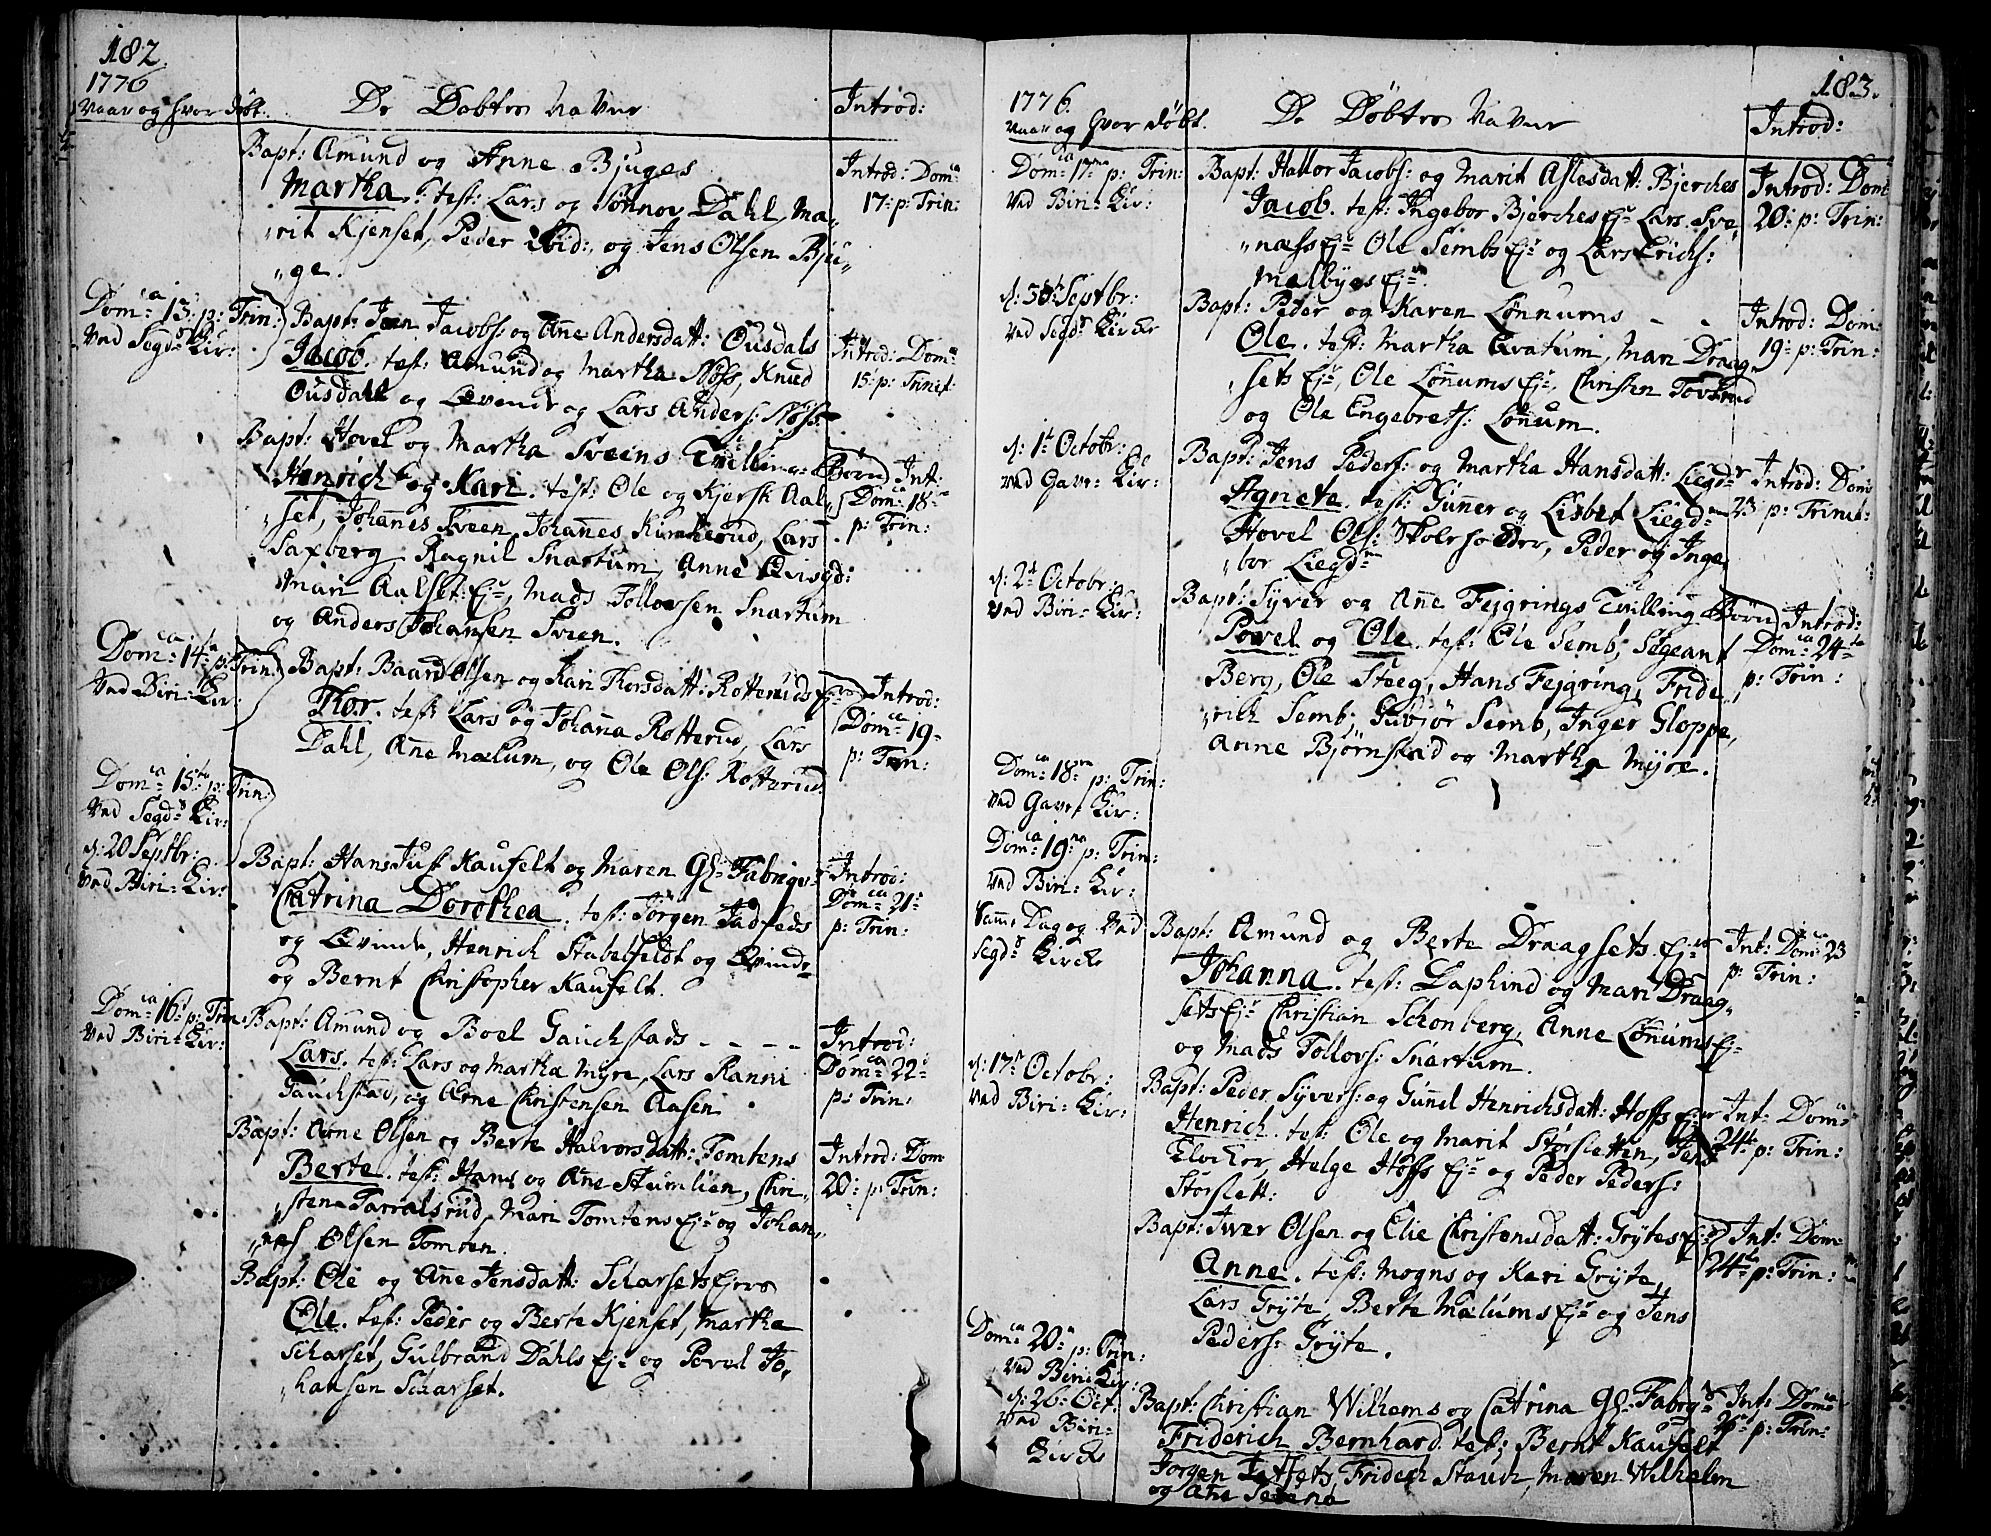 182.
1776
Naar og hvor døbt.
De Døbtes Navne
Introd:
Bapt: Amund og Anne Bjuges
Martha. test: Lars og Dahl, Ma„
„rit Kjenset, Peder ibid:, og Jens Olsen Bju„
„ge.
Introd: Domca
17: p: Trin:
Domca 13: p: Trin:
Ved Segdr Kir:
Bapt: Jacobs: og Anne Andersdatt: Ousdals
Jacob. test: Amund og Martha Nøss, Knud
Ousdall og Qvende og Lars Anders: Nøss.
Introd: Domca
15: p: Trinit:
Bapt: Hovel og Martha Sveens Tvilling Børn
Henrich og Kari. test: Ole og Kjersti Aal„
„set, Johannes Sveen, Johannes Kinkerud, Lars
Saxberg, Ragnil Snartum, Anne Qvisgd:
Mari Aalset: Eje, Mads Tollovsen Snartum
og Anders Johansen Sveen.
Int:
Domca 18
p: Trin:
Domca 14 p: Trin:
Ved Biri-Kir:
Bapt: Baard Olsen og Kari Thorsdatt: Rotteruds Eje
Thor. test: Lars og Johanna Rotterud, Lars
Dahl, Anne Mælum, og Ole Ols: Rotterud.
Introd:
Domca 19
p: Trin:
Domca 15 p: Trin:
Ved Segdr Kir:
d: 20 Septbr:
Ved Biri-Kir:
Bapt: Hans Just Kaufelt og Maren Gl: Fabriqvs
Catrina Dorothea. test: Jørgen
og Qvinde, Henrich Stabelfeldt og Qvinde
og Bernt Christopher Kaufelt.
Introd:
Domca 21
p: Trin:
Domca 16 p: Trin:
Ved Biri-Kir:
Bapt: Amund og Boel Gauchstads
Lars. test: Lars og Martha Myre, Lars Ranni
Gauchstad, og Arne Christensen Aasen
Introd:
Domca 22
p: Trin:
Bapt: Arne Olsen og Berte Halvorsdatt: Tomtens
Berte. test: Hans og Anne Stumlien, Chri„
„sten Tarralsrud, Mari Tomtens Eje og Johan„
„nes Olsen Tomten.
Introd: Dom
20: p: Trin:
Bapt: Ole og Anne Jensdatt: Scharsets Ejers
Ole. test: Peder og Berte Kjenset, Martha
Scharset, Gulbrand Dahls Eje og Povel Jo„
„hansen Scharset.
183.
1776.
Naar og hvor døbt.
De Døbtes Navne
Introd:
Domca 17 p: Trin:
Ved Biri-Kir:
Bapt: Hallor Jacobs: og Marit Aslesdatt: Bjerches
Jacob. test: Ingebor Bjerches Eje Lars Sve„
„næss Eje Ole Sembs Eje og Lars Erichs:
Mælbyes Eje
Introd: Dom
20: p: Trin:
d: Septbr:
Ved Segdr Kirche
Bapt: Peder og Karen Lønnums
Ole. test: Martha Qvatum, Mari Draag„
„sets Eje, Ole Lønnums Eje, Christen
og Ole Engebrets: Lønnum.
Introd: Dom:
19: p: Trin:
d: 1t Octobr:
Ved Gave-Kir:
Bapt: Jens Peders: og Martha Hansdatt: Liegdr
Agnete. test: Gunner og Lisbet Liegdn
Hovel Ols: Skoleholder, Peder og Inge„
„bor Liegdn
Introd: Dom:
23 p: Trinit:
d: 2d Octobr:
Ved Biri-Kir:
Bapt: Syver og Anne Fejgrings Tvilling Børn
Povel og Ole. test: Ole Semb, Segeant
Berg, Ole Steeg, Hans Fejgring, Fride„
„rich Semb, Gubjør Semb, Inger Gloppe,
Anne Bjørnstad og Martha Myre.
Introd:
Domca 24
p: Trin:
Domca 18 p: Trin:
Ved Gave-Kir:
Domca 19 p: Trin:
Ved Biri-Kir:
Samme Dag og Ved
Segdr Kirche
Bapt: Amund og Berte Draagsets Eje
Johanna. test: Laphind og Mari Draag„
sets Eje Christian Schonberg, Anne Lønnums Eje
og Mads Tollovs: Snartum.
Int: Domca 23
p: Trin:
d: 17 Octobr:
Ved Biri-Kir:
Bapt: Peder Syvers: og Gunnel Henrichsdatt: Hoffs Eje
Henrich. test: Ole og Marit Storsletten, Jens
Klocker, Helge Hoffs Eje og Peder Peders:
Storslett:
Int: Domca
24 p: Trin:
Bapt: Iwer Olsen og Elie Christensdatt: Grytes Eje
Anne. test: Mogns og Kari Gryte,
Lars Gryte, Berte Mælums Eje og Jens
Peders: Gryte.
Int: Dom
24 p: Trin:
Domca 20 p: Trin:
Ved Biri Kir:
d: 26: Oct:
Ved Biri-
Kirche
Bapt: Christian Wilhems og Catrina Gl: Fabrqs
Friderich Bernhard. test: Bernt Kaufelt
Jørgen, Friderch Stauch, Maren Wilhelm
og Ane
Int: Domca
p: Trin: